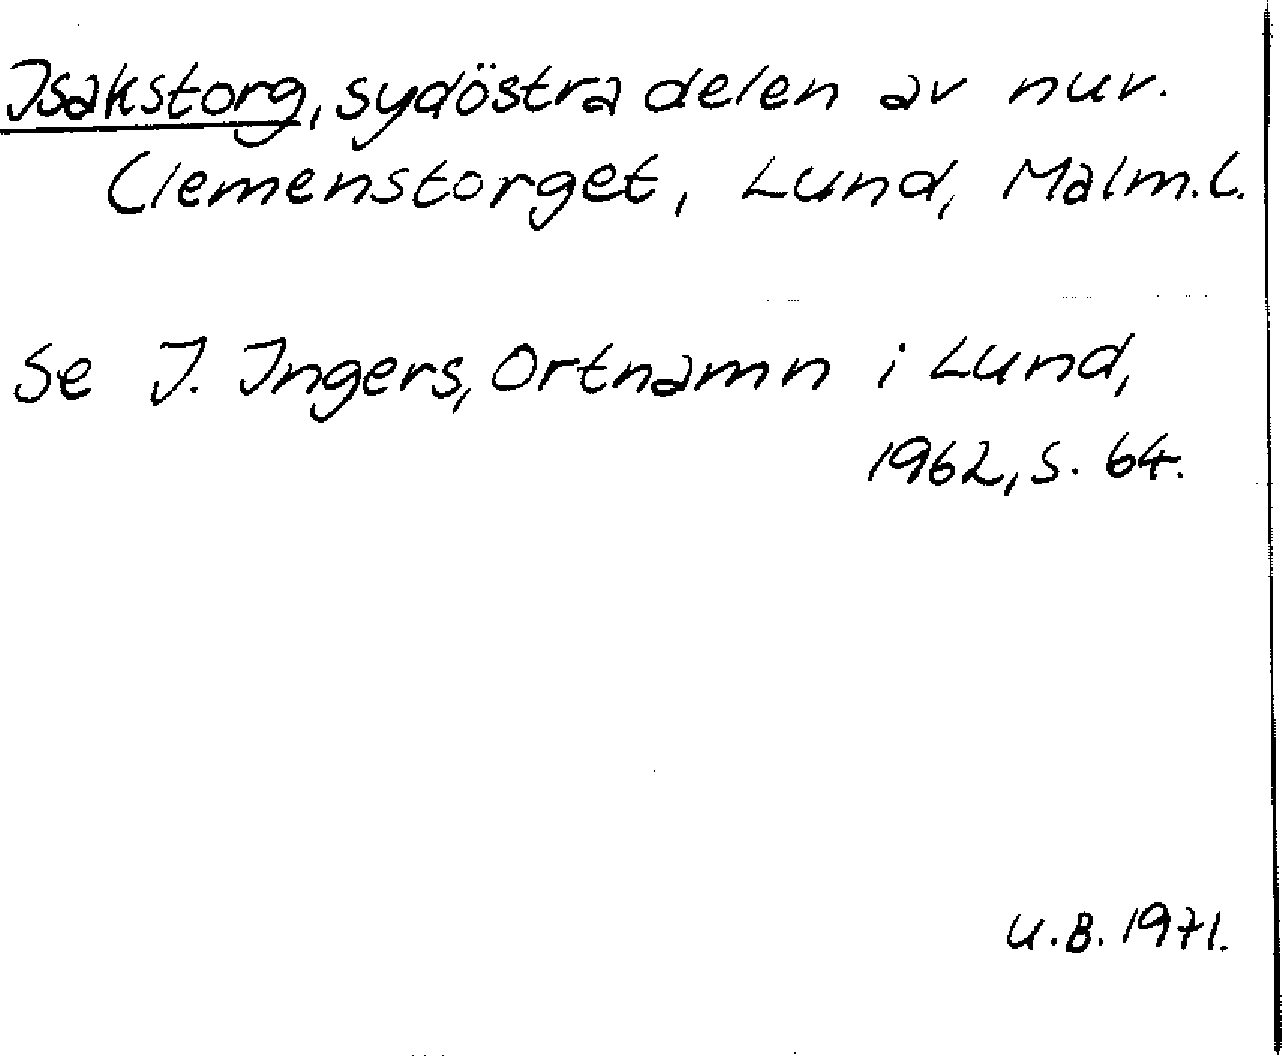 Isakstorg, sydöstra delen av nuv.
Clemenstorget, Lund, Malm.l.
Se I. Ingers, Ortnamn i Lund,
1962, s. 64.
U.B. 1971.